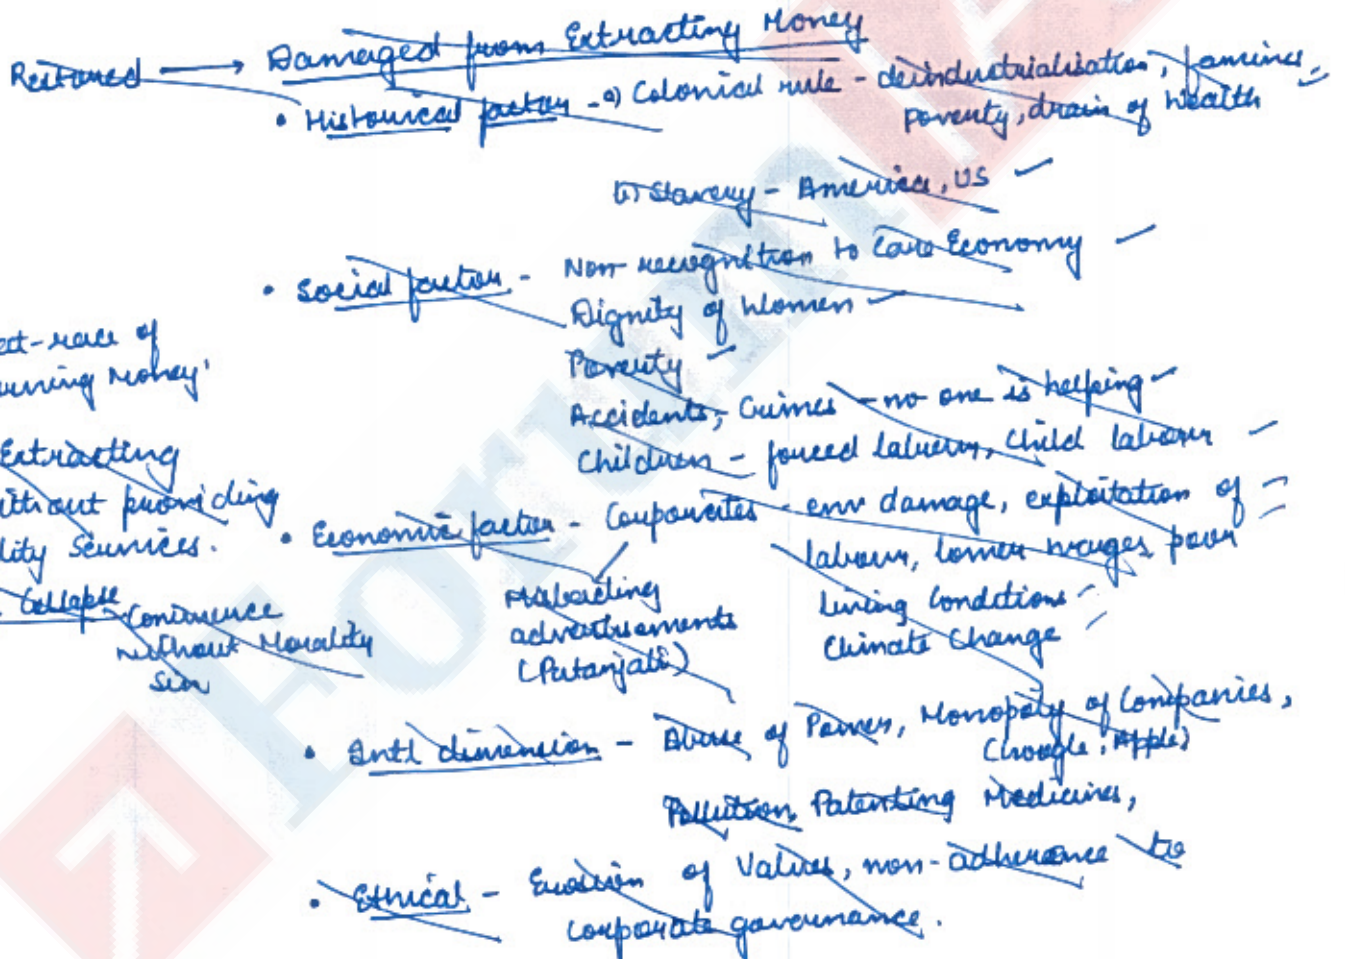 Restored → Damaged from Extracting Money
• Historical factor - a) Colonial rule - deindustrialisation, famines,
poverty, drain of wealth
b) Slavery - America, US
• Social factor - Non recognition to Care Economy
Dignity of Women
Poverty
Accidents, Crimes - no one is helping
Children - forced labour, Child labour
race of
Money'
Extracting
without providing
Services.
Collapse
Commerence
without Morality
Sin
• Economic factor - Corporates - env damage, exploitation of
labour, lower wages, poor
Living Conditions
Climate Change
Misleading
advertisements
(Patanjali)
• Intl dimension - Abuse of Power, Monopoly of Companies,
(Google, Apple)
Pollution, Patenting Medicines,
• Ethical - Erosion of Values, non-adherence to
corporate governance.
Forum